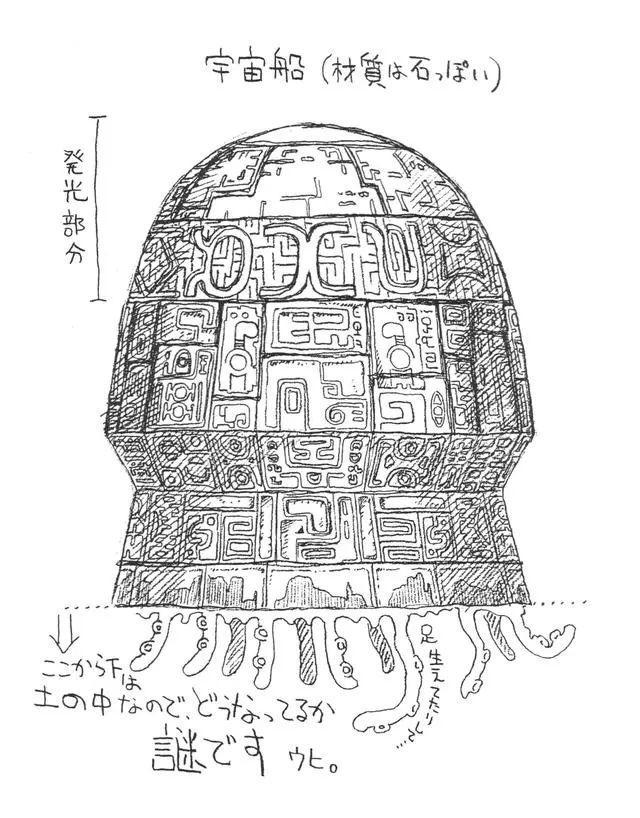 宇宙船（材質は石っぽい）
発光部分
ここから下は
土の中なので、どうなってるか
謎です ウヒ。
足生えてたりして…